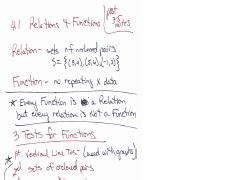 4.1 Relations & Functions
post
notes
Relation - sets of ordered pairs
S = {(3,4), (5,6), (-1,2)}
Function - no repeating x data
* Every Function is a Relation
but every relation is not a Function
3 Tests for Functions
* Vertical Line Test (used with graphs)
sets of ordered pairs